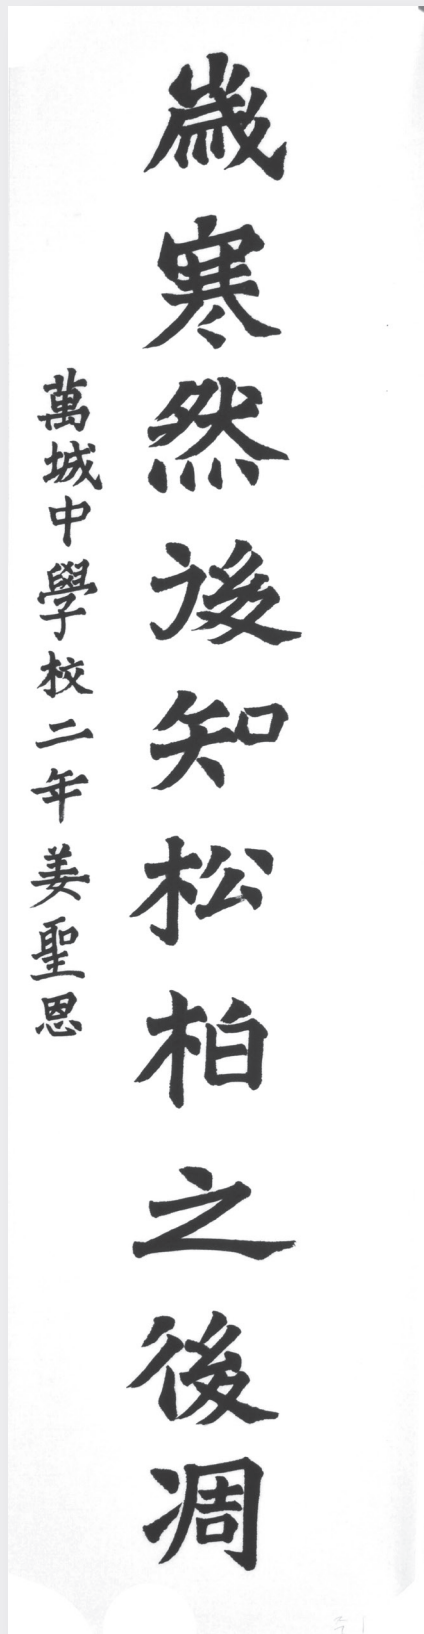 歲寒然後知松柏之後凋
萬城中學校二年 姜聖恩